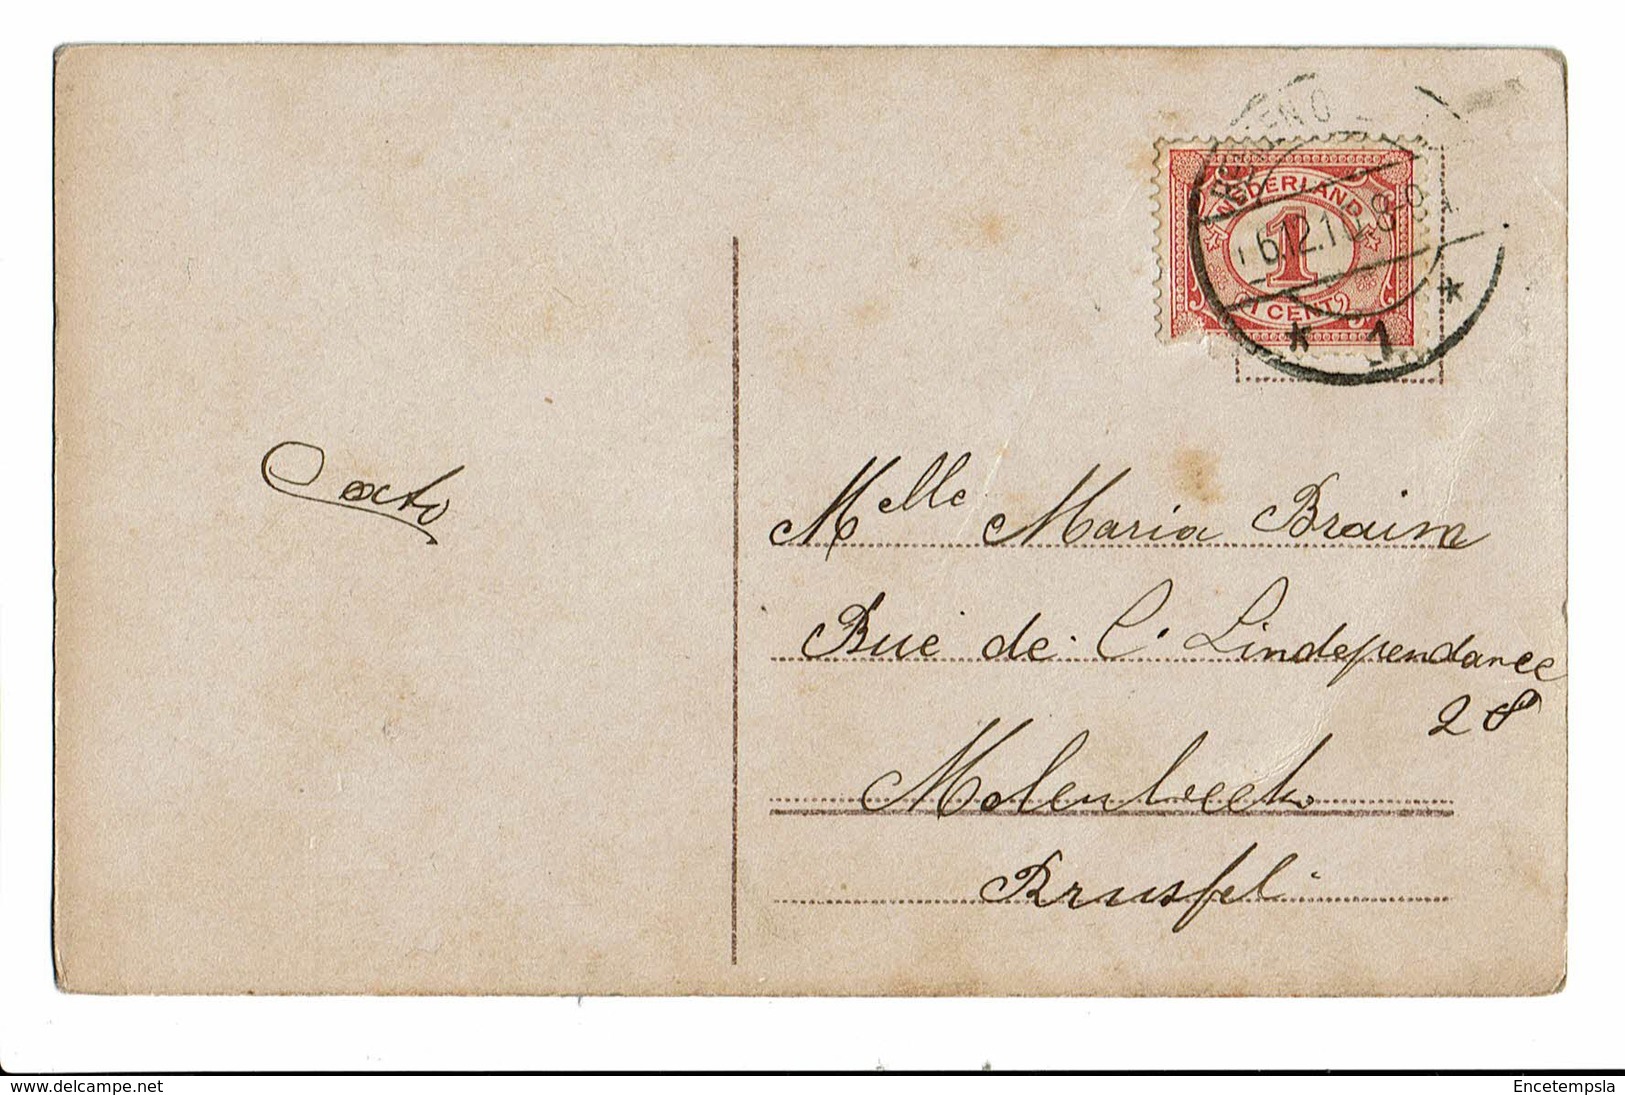 NEDERLAND
1
1 CENT
6.12.1 .8-9
* 1 *
Melle Maria Braim
Rue de L' Lindependance
28
Molenbeek
Brussel
www.delcampe.net
Encetempsla